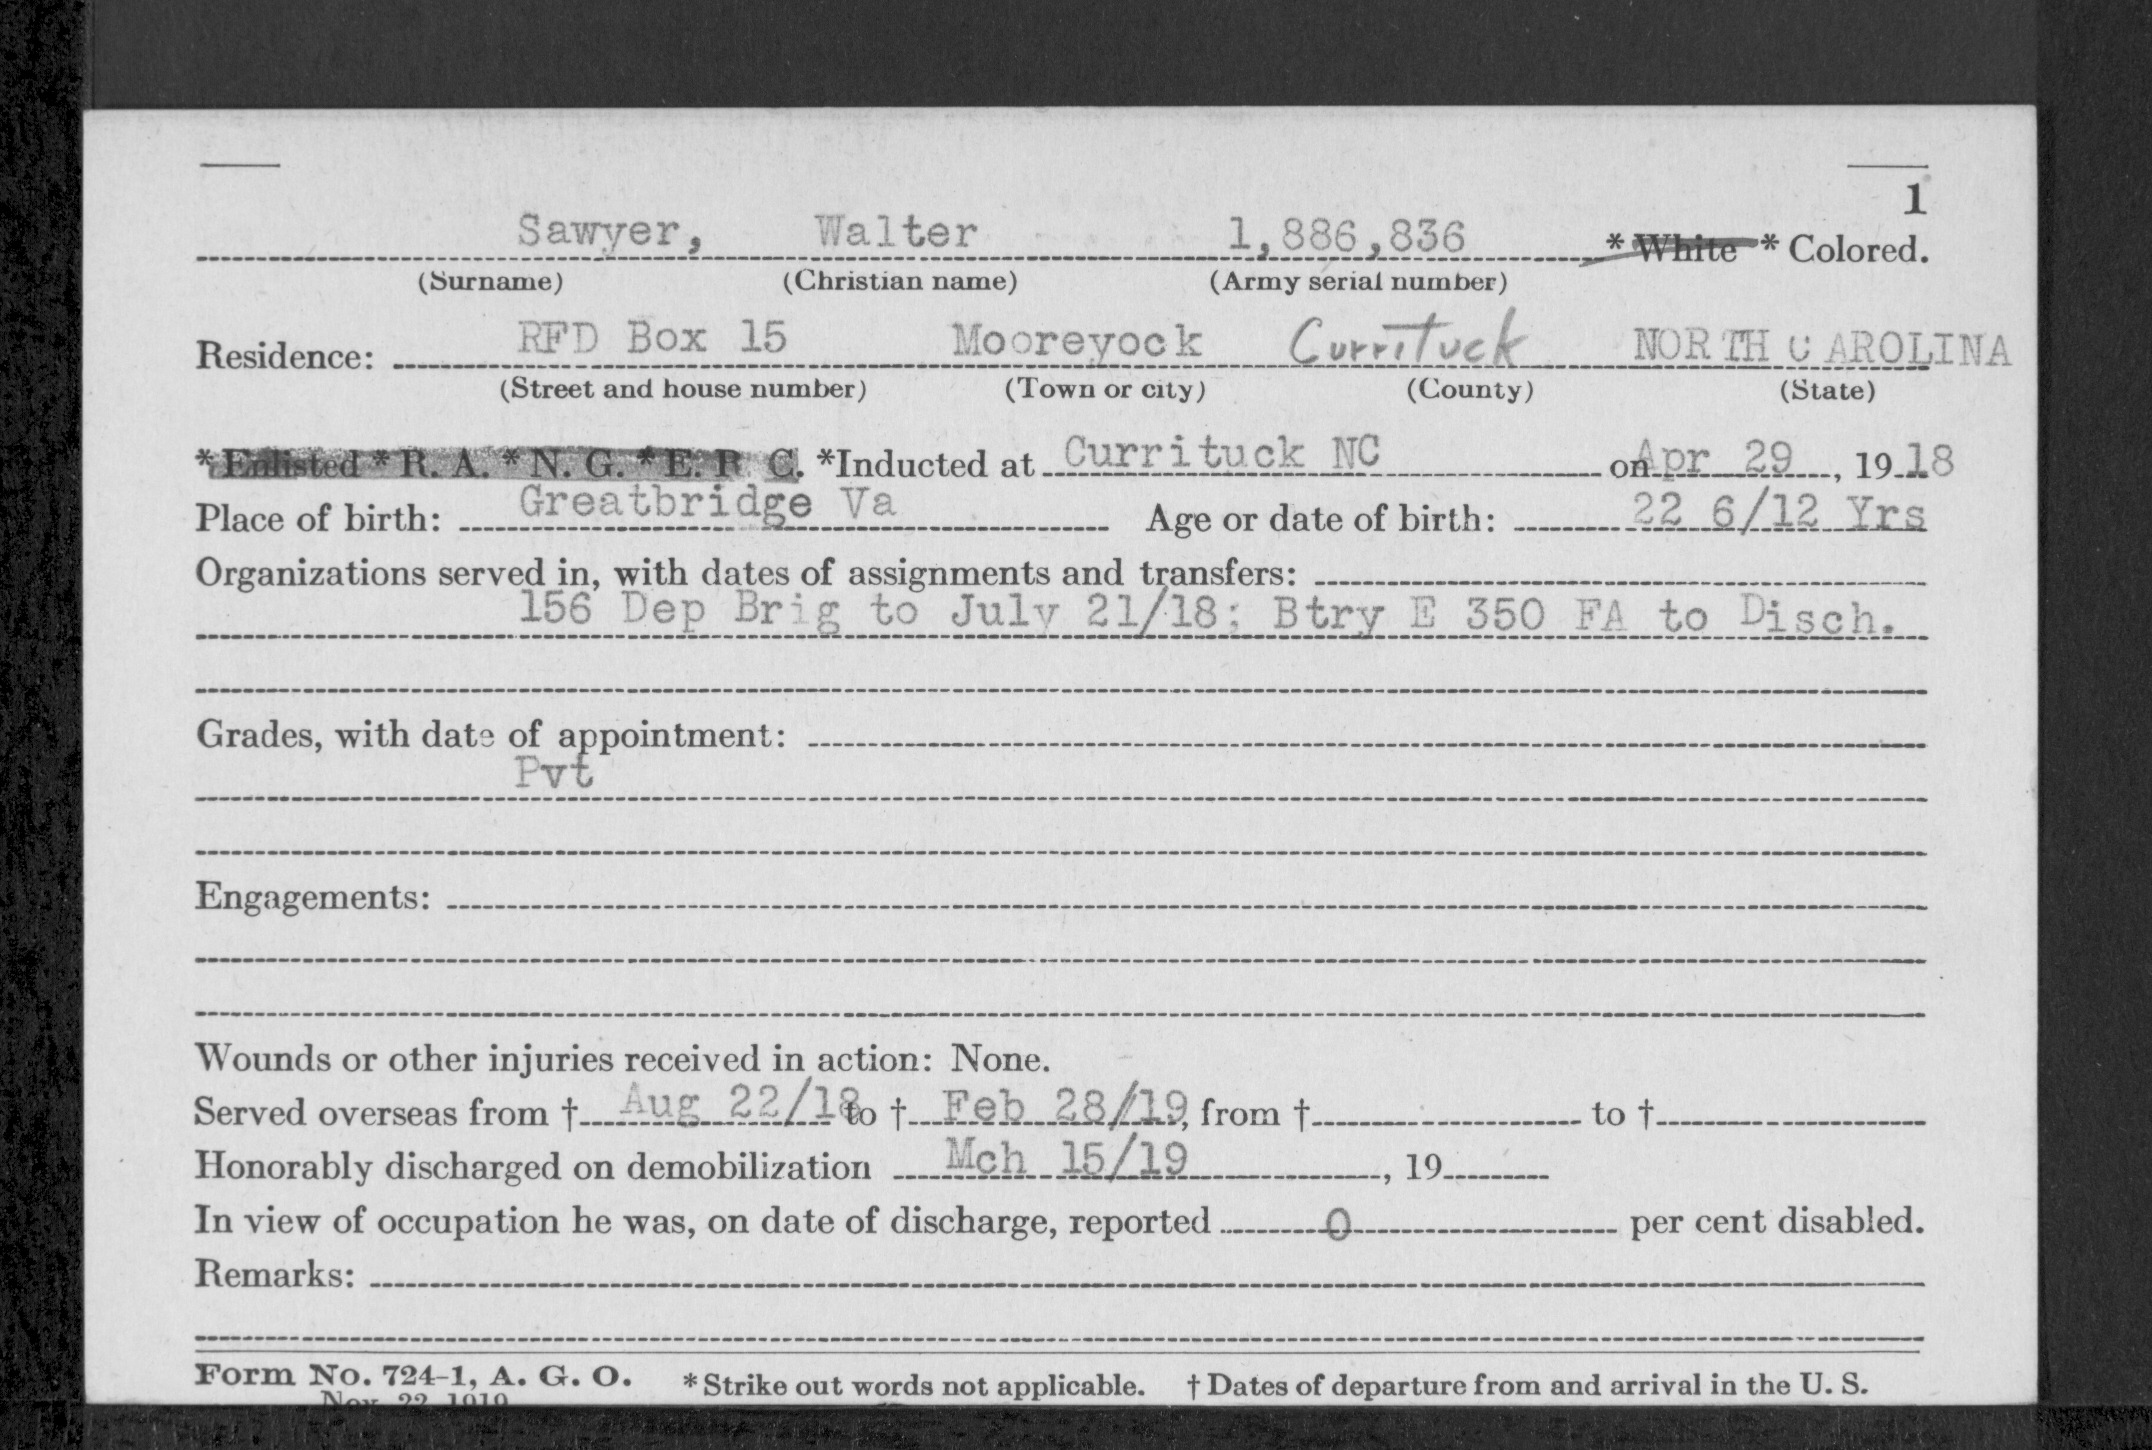 1
Sawyer, Walter 1,886,836 * White * Colored.
(Surname) (Christian name) (Army serial number)
Residence: RFD Box 15 Mooreyock Currituck NORTH CAROLINA
(Street and house number) (Town or city) (County) (State)
* Enlisted * R. A. * N. G. * E. R. C. *Inducted at Currituck NC on Apr 29, 1918
Place of birth: Greatbridge Va Age or date of birth: 22 6/12 Yrs
Organizations served in, with dates of assignments and transfers:
156 Dep Brig to July 21/18; Btry E 350 FA to Disch.
Grades, with date of appointment:
Pvt
Engagements:
Wounds or other injuries received in action: None.
Served overseas from † Aug 22/18 to † Feb 28/19, from † to †
Honorably discharged on demobilization Mch 15/19, 19
In view of occupation he was, on date of discharge, reported 0 per cent disabled.
Remarks:
Form No. 724-1, A. G. O. * Strike out words not applicable. † Dates of departure from and arrival in the U. S.
Nov. 22, 1919